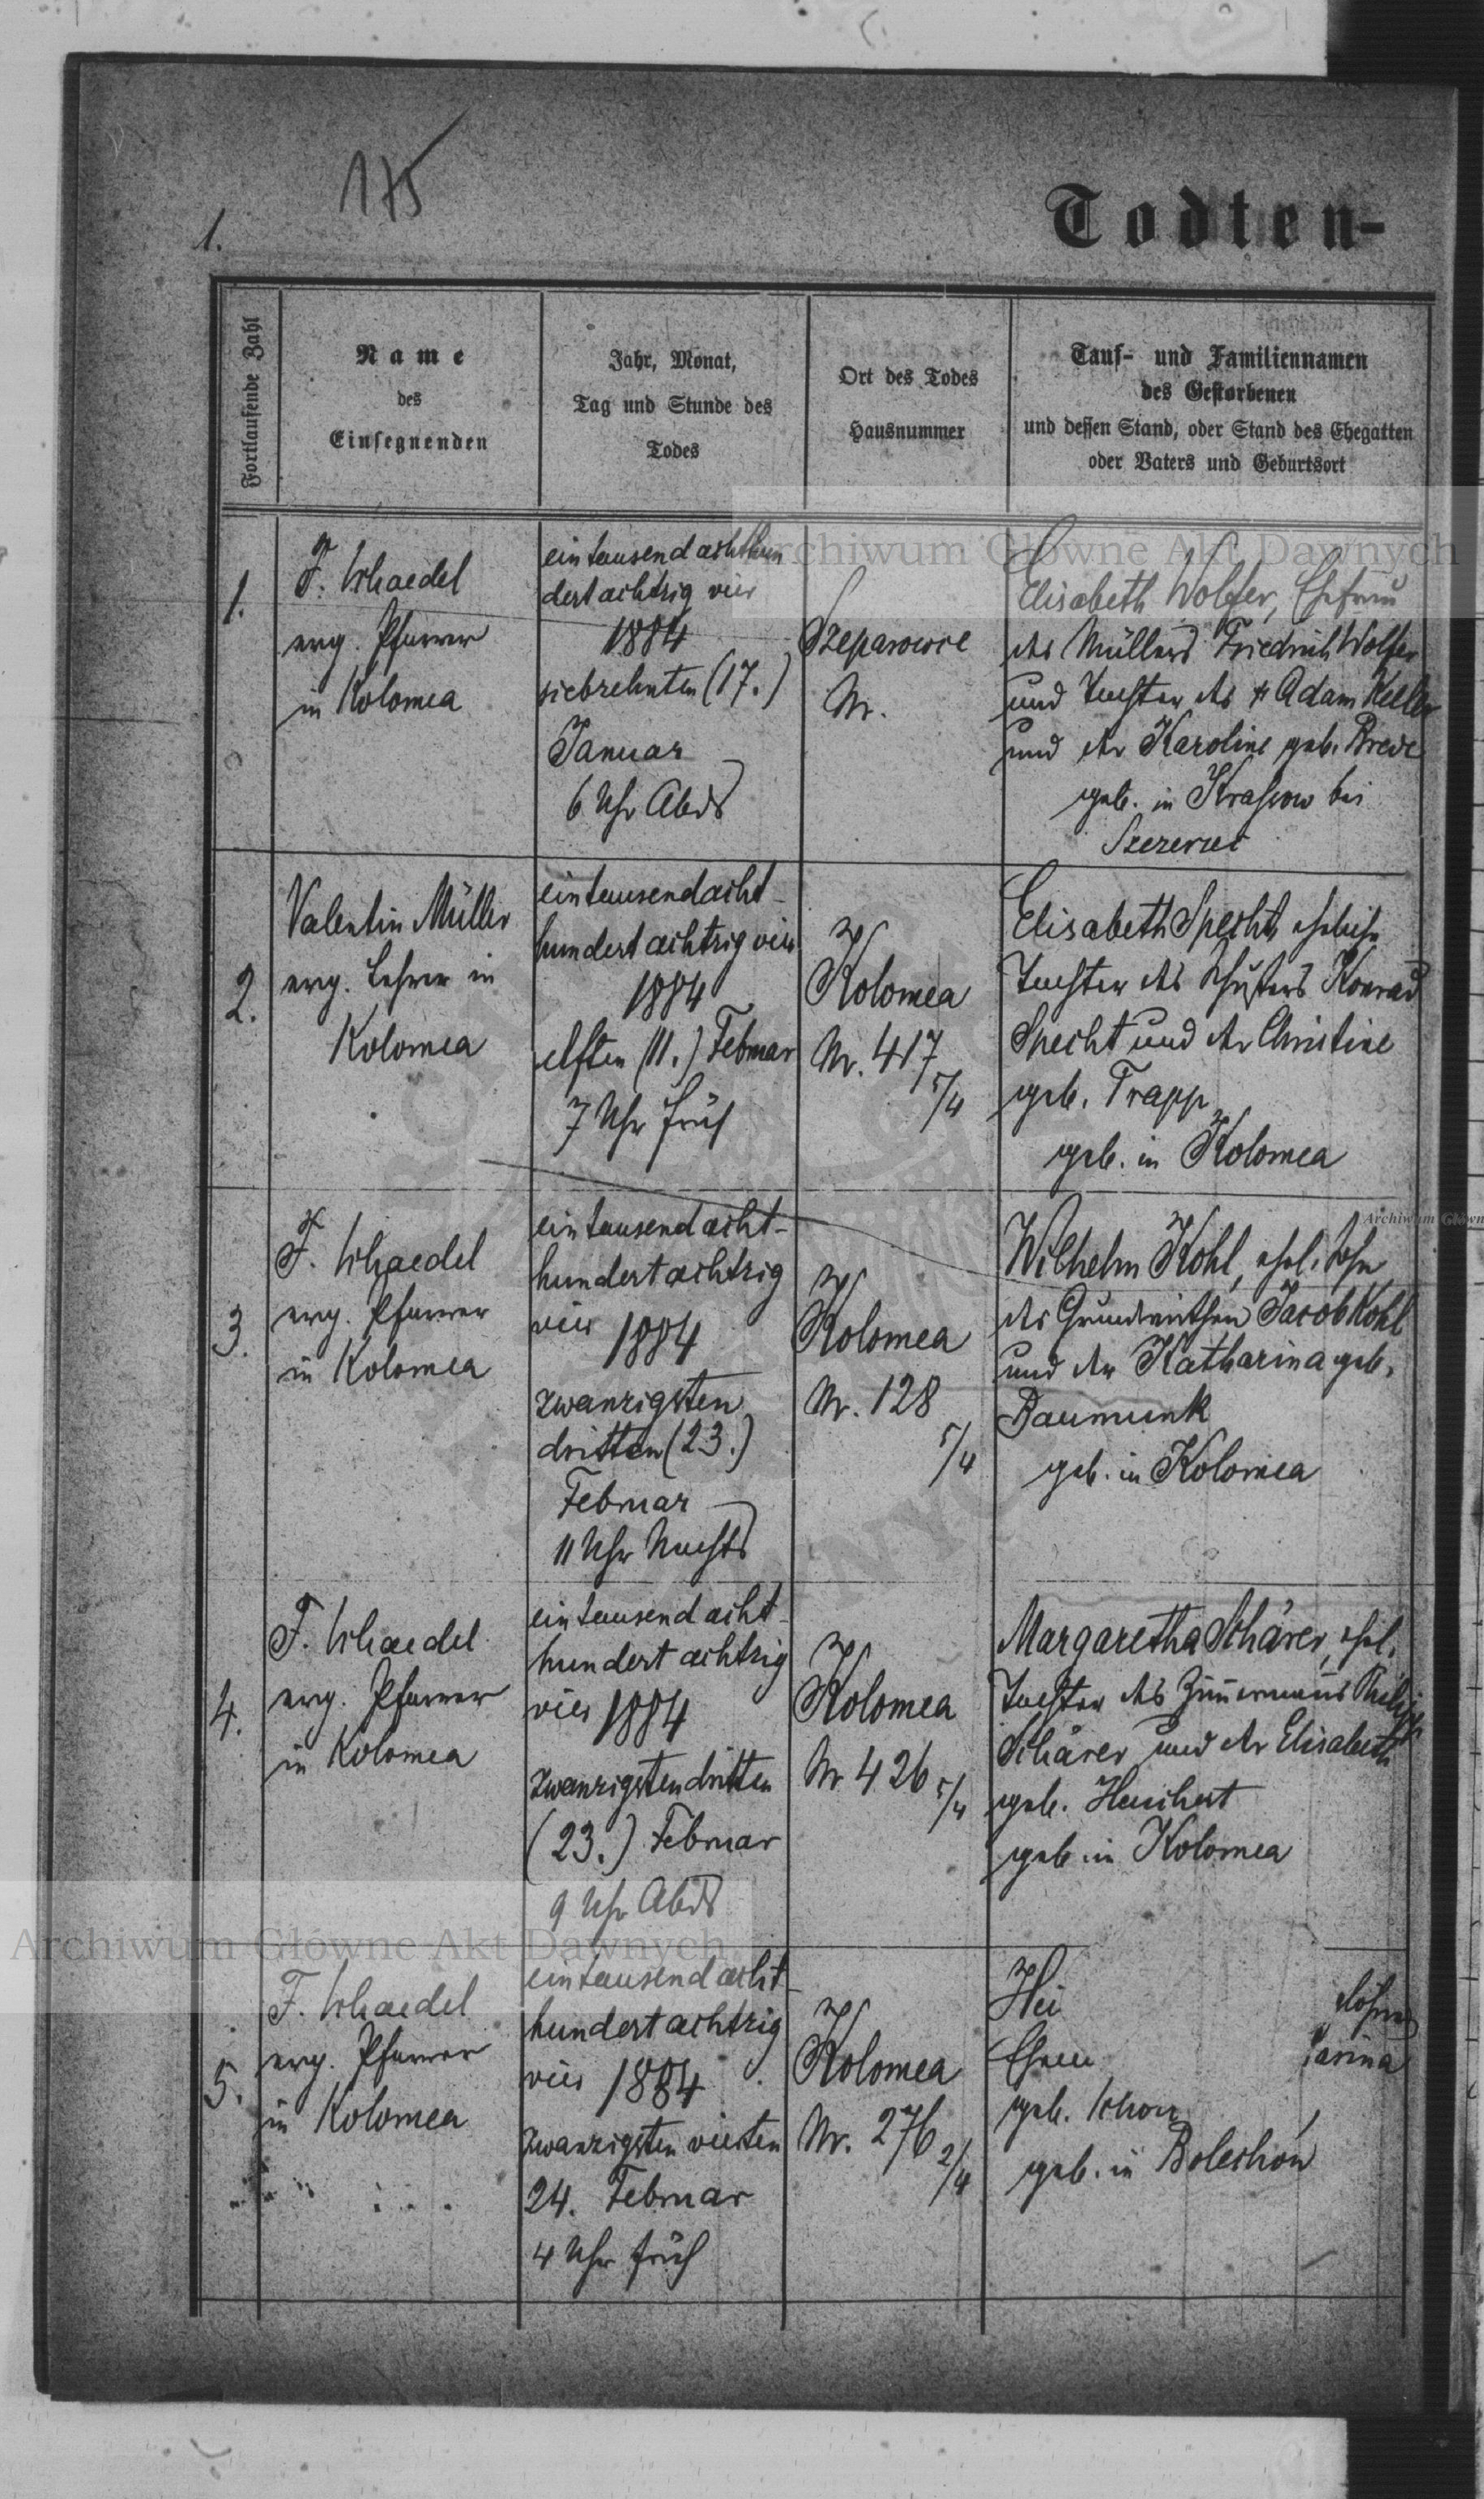 175
1.
Todten-
Fortlaufende Zahl
Name
des
Einsegnenden
Jahr, Monat,
Tag und Stunde des
Todes
Ort des Todes
Hausnummer
Tauf- und Familiennamen
des Gestorbenen
und dessen Stand, oder Stand des Ehegatten
oder Vaters und Geburtsort
Archiwum Główne Akt Dawnych
1.
F. Schaedel
evg. Pfarrer
in Kolomea
eintausendachthun
dertachtzig vier
1884
siebzehnten (17.)
Januar
6 Uhr Abds
Szeparowce
Nr.
Elisabeth Wolfer, Ehefrau
des Müllers Friedrich Wolfer
und Tochter des Adam Keller
und der Karoline geb.
geb. in bei
Szczerzec
2.
Valentin Müller
evg. Lehrer in
Kolomea
eintausendacht-
hundertachtzig vier
1884
elften (11.) Februar
7 Uhr früh
Kolomea
Nr. 417
5/4
Elisabeth Specht, eheliche
Tochter des Schusters Konrad
Specht und der Christine
geb. Trapp
geb. in Kolomea
Archiwum Główn
3.
F. Schaedel
evg. Pfarrer
in Kolomea
eintausendacht-
hundertachtzig
vier 1884
zwanzigsten
dritten (23.)
Februar
11 Uhr Nachts
Kolomea
Nr. 128
5/4
Wilhelm Kohl, ehel. Sohn
des Grundwirthen Jacob Kohl
und der Katharina geb.
Baumunk
geb. in Kolomea
4.
F. Schaedel
evg. Pfarrer
in Kolomea
eintausendacht-
hundert achtzig
vier 1884
zwanzigsten dritten
(23.) Februar
9 Uhr Abds
Kolomea
Nr 426 5/4
Margaretha Schärer, ehel.
Tochter des Zimmermanns Philipp
Schärer und der Elisabeth
geb.
geb. in Kolomea
Archiwum Główne Akt Dawnych
5.
F. Schaedel
evg. Pfarrer
in Kolomea
eintausendacht-
hundertachtzig
vier 1884
zwanzigsten vierten
24. Februar
4 Uhr früh
Kolomea
Nr. 276 2/4
Hei
arina
geb.
geb. in Bolechów